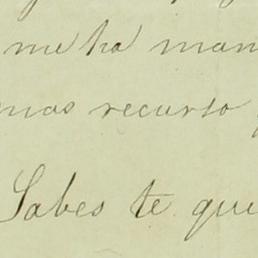 me ha man
mas recurso
Sabes te que